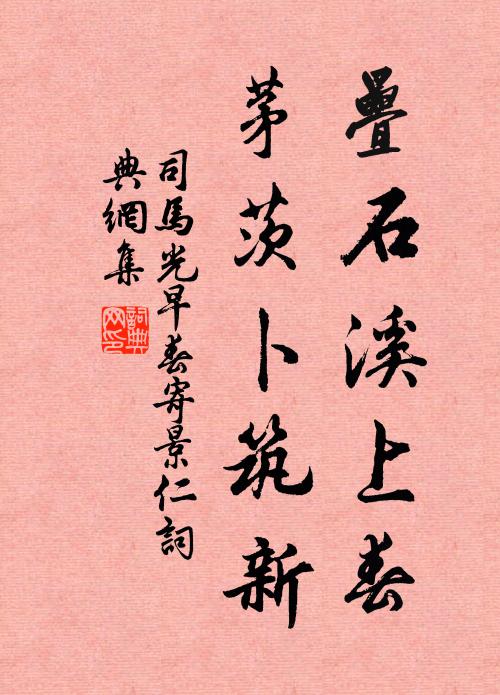 疊石溪上春
茅茨卜筑新
司馬光早春寄景仁詞
典網集
詞典网印